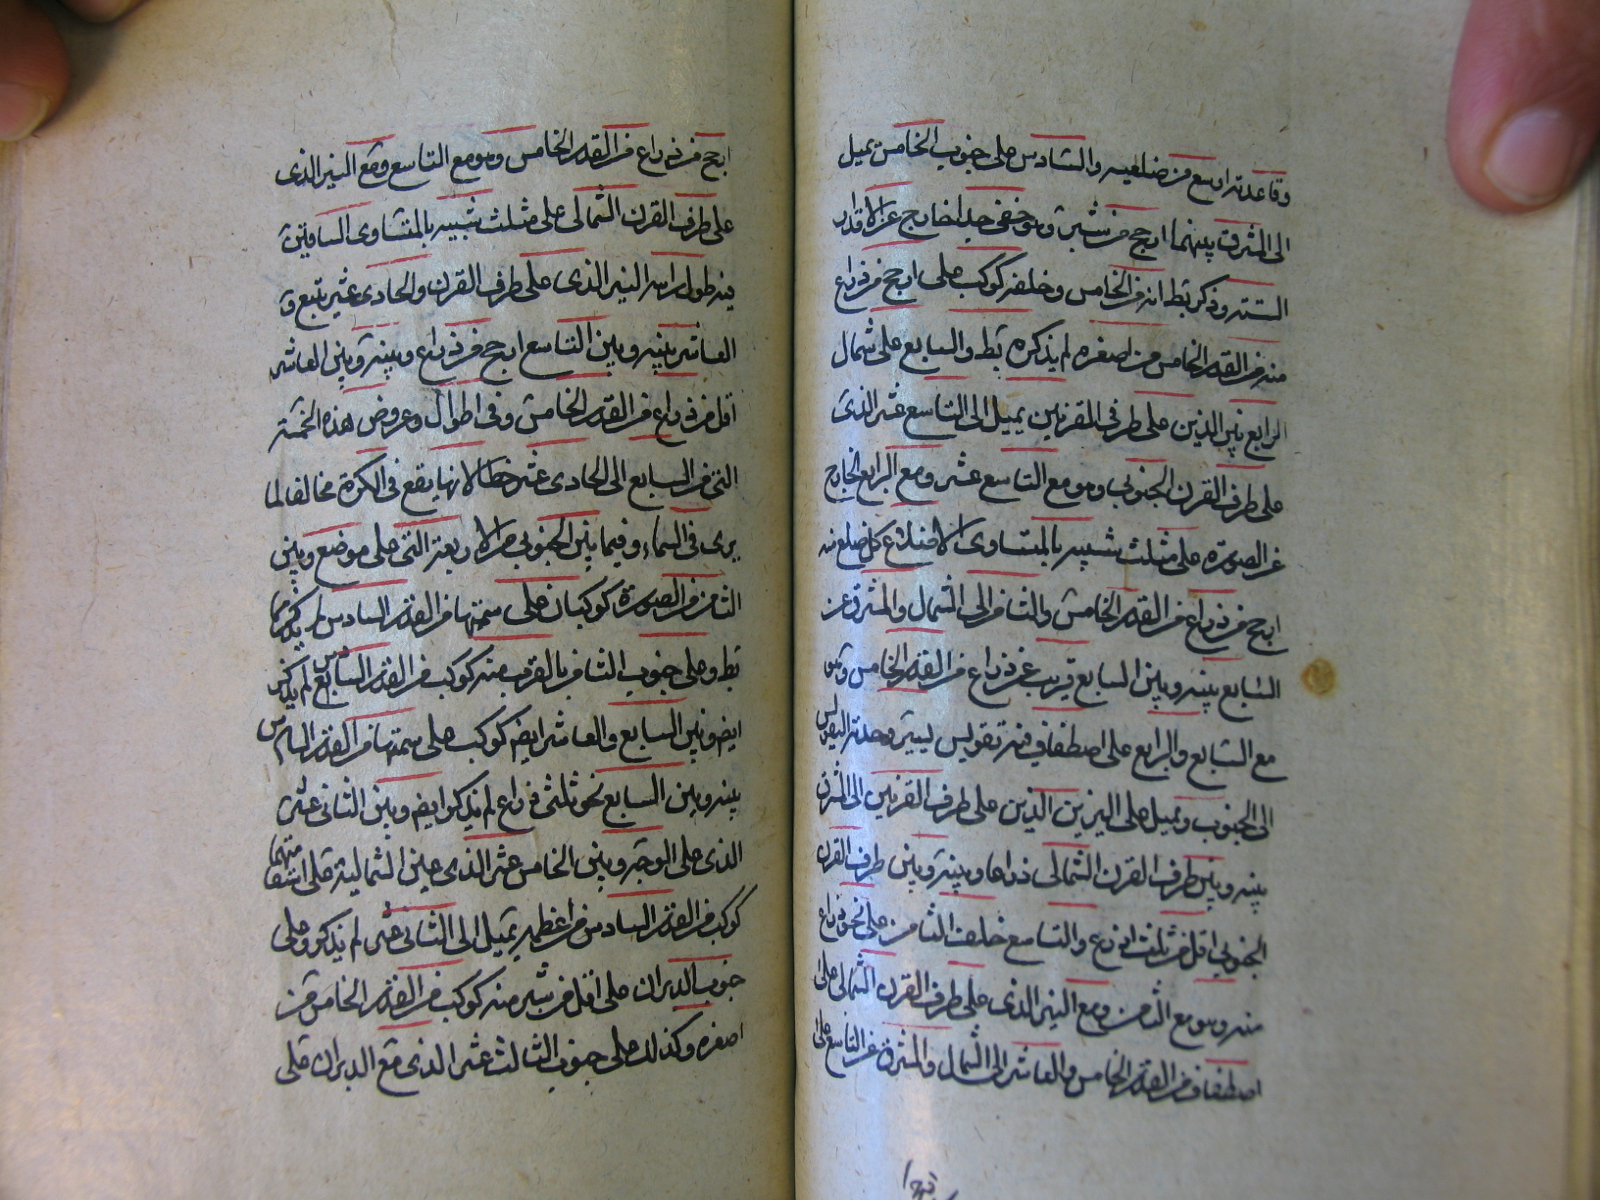 وقاعدته اوسع من ضلعيه والسادس على جنوب الخامس يميل
الى المشرق بينهما ارجح من شبر وهو خفى جدا خارج عن الاقدار
الستة وذكر بط انه من الخامس وخلفه كوكب على ارجح من ذراع
منه من القدر الخامس من اصغره لم يذكره بط والسابع على شمال
الرابع بين الذين على طرفى القرنين يميل الى التاسع عشر الذى
على طرف القرن الجنوبى وهو مع التاسع عشر ومع الرابع الخارج
عن الصورة على مثلث شبيه بالمتساوى الاضلاع كل ضلع منه
ارجح من ذراع من القدر الخامس والثامن الى الشمال والمشرق عن
السابع بينه وبين السابع قريب من ذراع من القدر الخامس وهو
مع السابع والرابع على اصطفاف فيه تقويس يسير وحدبة التقويس
الى الجنوب ويميل على النيرين الذين على طرف القرنين الى المشرق
بينه وبين طرف القرن الشمالى ذراعا وبينه وبين طرف القرن
الجنوبى اقل من ثلث اذرع والتاسع خلف الثامن على نحو ذراع
منه وهو مع الثامن ومع النير الذى على طرف القرن الشمالى على
اصطفاف من القدر الخامس والعاشر الى الشمال والمشرق عن التاسع على
ارجح من ذراع من القدر الخامس وهو مع التاسع ومع النير الذى
على طرف القرن الشمالى على مثلث شبيه بالمتساوى الساقين
فيه طول راسه النير الذى على طرف القرن والحادى عشر يتبع
العاشر بينه وبين التاسع ارجح من ذراع وبينه وبين العاشر
اقل من ذراع من القدر الخامس وفى اطوال وعروض هذه الخمسة
التى من السابع الى الحادى عشر خطا لانها يقع فى الكرة مخالفا لما
يرى فى السماء وفيما بين الجنوبى من الاربعة التى على موضع وبين
الثامن من الصورة كوكبان على سمتها من القدر السادس لم يذكرهما
بط وعلى جنوب الثامن بالقرب منه كوكب من القدر السادس لم يذكره
ايضا وبين السابع والعاشر ايضا كوكب على سمتهما من القدر السادس
بينه وبين السابع نحو ثلثى ذراع لم يذكر ايضا وبين الثانى عشر
الذى على الوجه وبين الخامس عشر الذى على عين الشمالية على استقامتهما
كوكب من القدر السادس من اعظمه يميل الى الثانى عشر لم يذكر وعلى
جنوب الدبران على اقل من شبر منه كوكب من القدر الخامس من
اصغره وكذلك على جنوب الثالث عشر الذى مع الدبران على